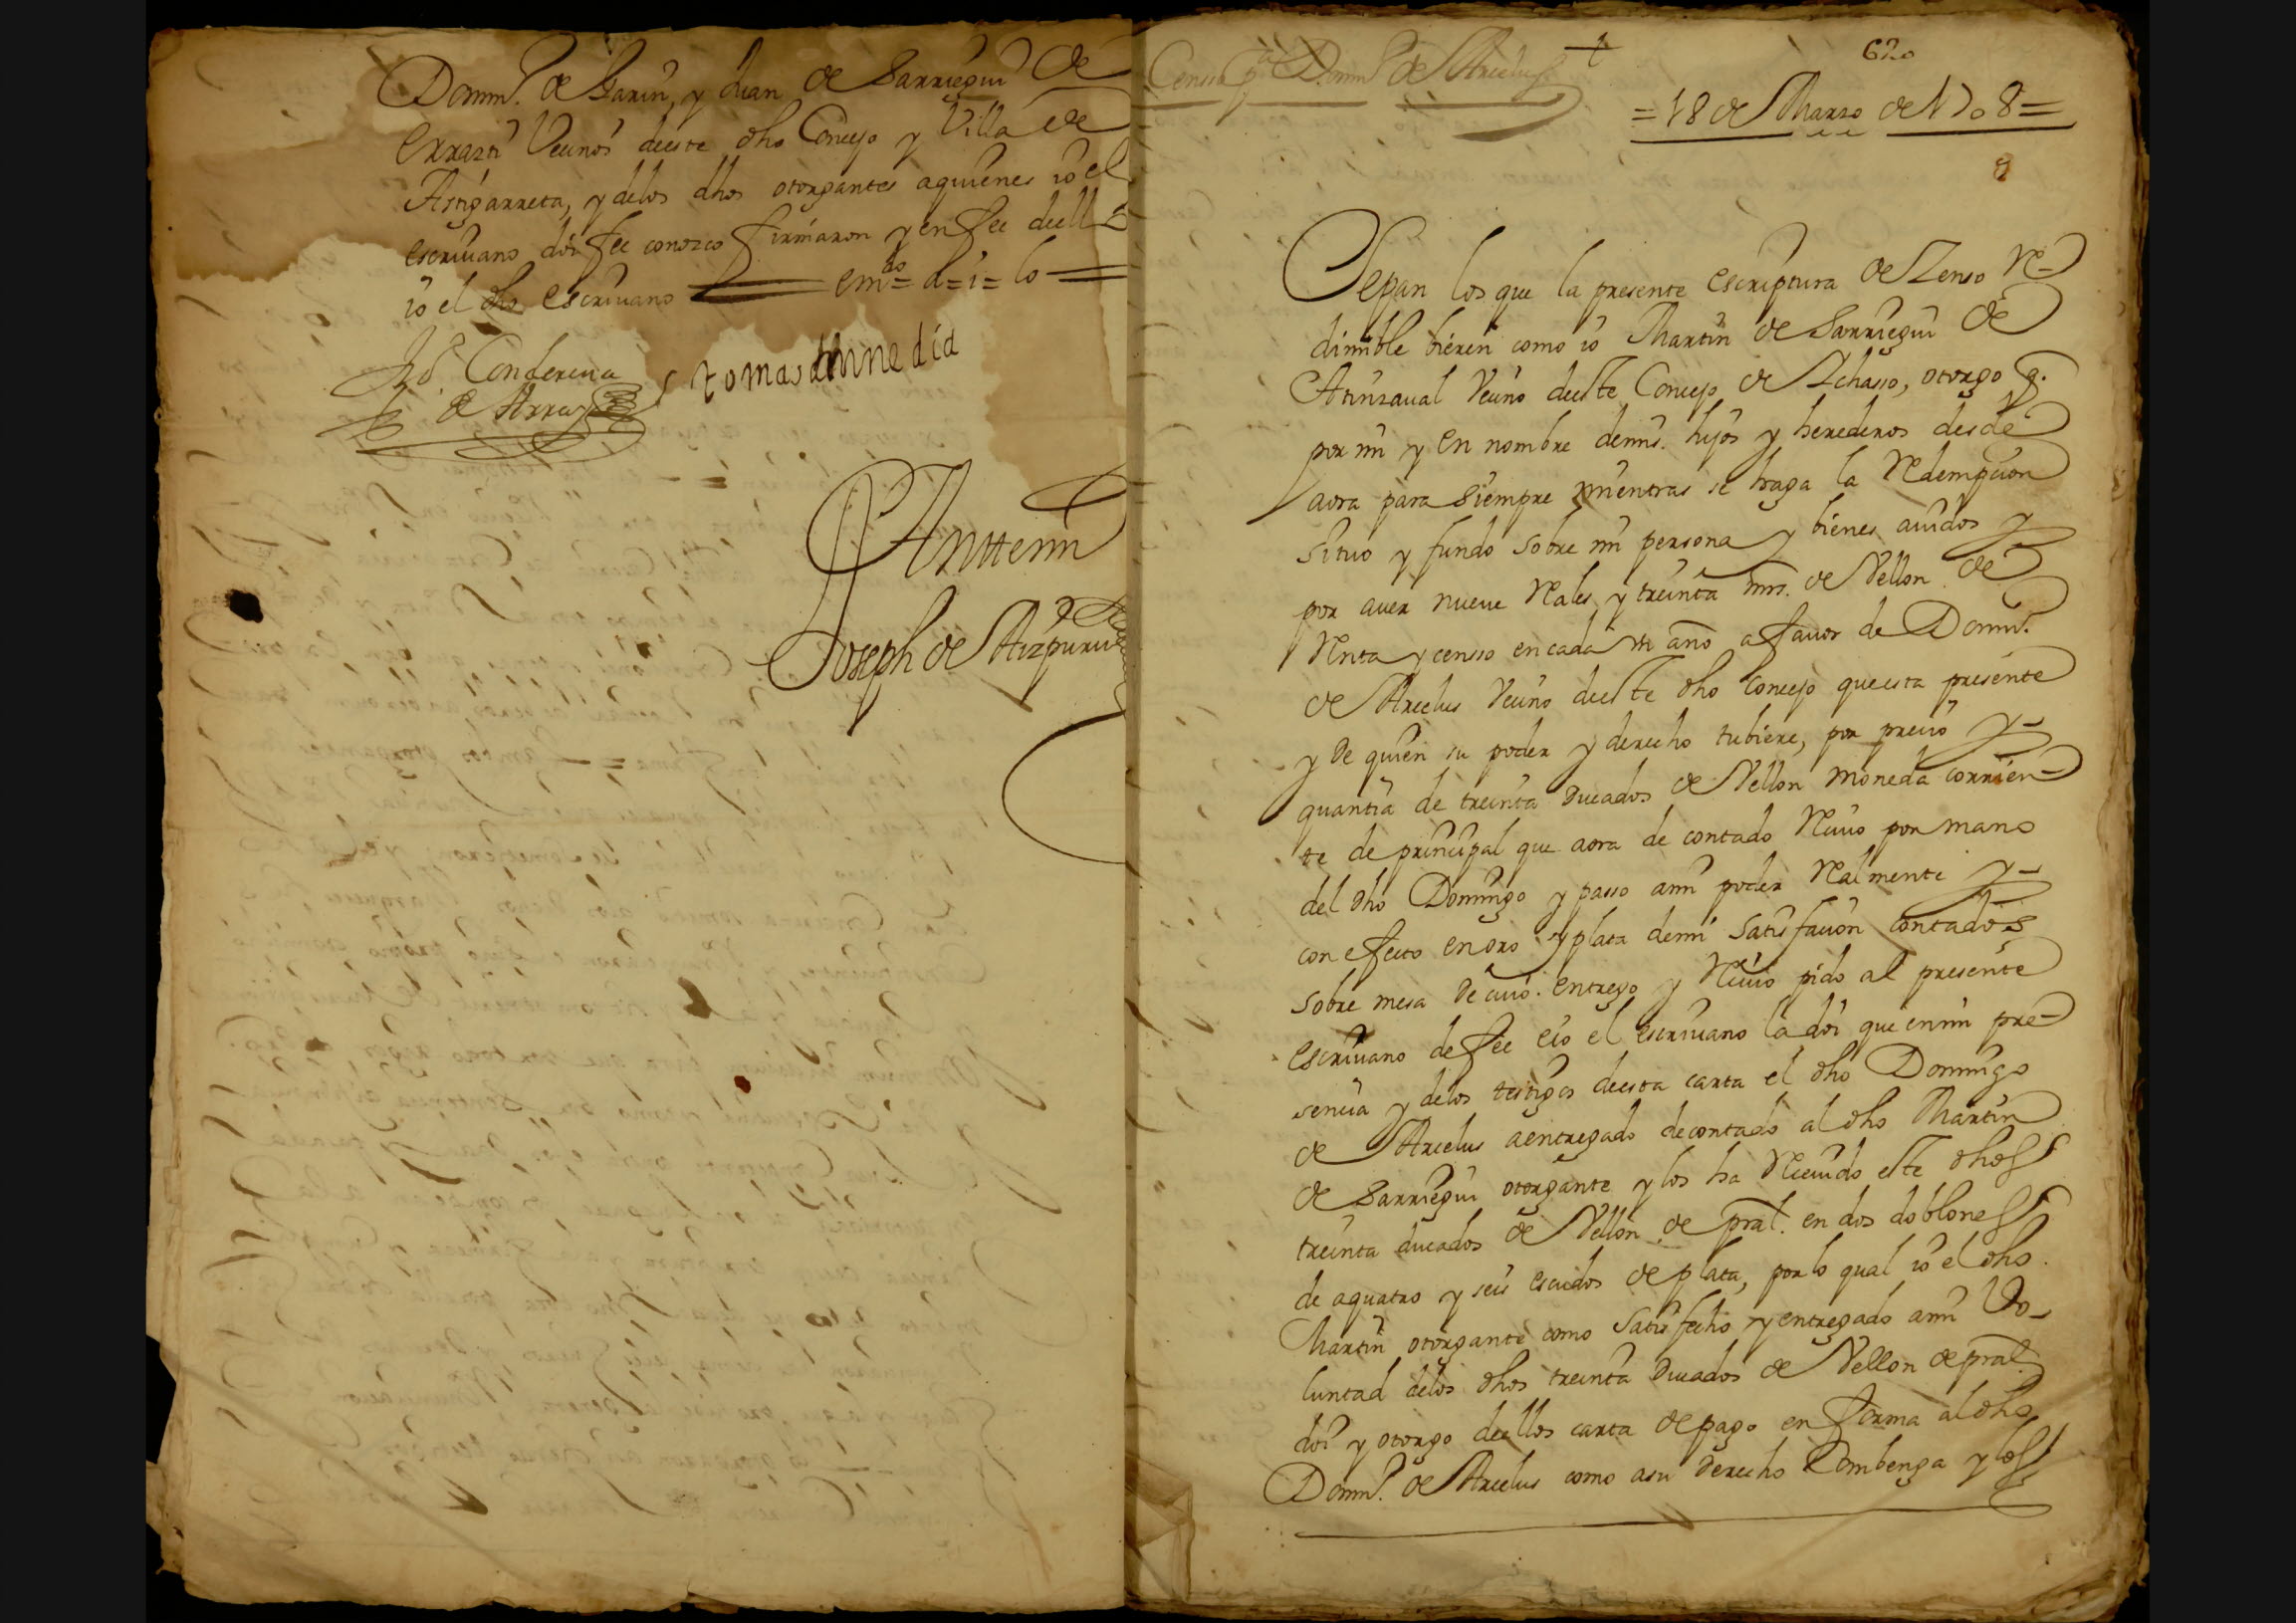 Domin.º de Garin, y Juan de Sarriegui de
Errazti Vecinos deeste dho Concejo y Villa de
Astigarreta, y de los dhos otorgantes aquienes io el
escriuano doi fee conozco firmaron y en fee deello
io el dho escriuano emdo = a = i = lo
Conderena
de Array
tomas de unnedia
Antte mi
Joseph de Aizpuru
Censo pª Domin.º de Arcelus
620
= 18 de Marzo de 1708 =
Sepan los que la presente escriptura de Zenso Re-
dimible bieren como io Martin de Sarriegui de
Atinzaual Vecino deeste Concejo de Ichasso, otorgo q.
por mi y en nombre de mis hijos y herederos desde
aora para siempre mientras se haga la Redempcion
situo y fundo sobre mi persona y bienes auidos y
por auer nueue Reales y treinta mrs. de Vellon de
Renta y censso en cada un año a fauor de Domin.º
de Arcelus Vecino deeste dho Concejo que esta presente
y de quien su poder y derecho tubiere, por precio y-
quantia de treinta Ducados de Vellon moneda corrien-
te de principal que aora de contado Reciuo por mano
del dho Domingo y passo ami poder Realmente y-
con efecto en oro y plata demi satisfacion contados
sobre mesa de cuio entrego y Reciuo pido al presente
escriuano de fee eio el escriuano la doi que en mi pre-
sencia y de los testigos deesta carta el dho Domingo
de Arcelus a entregado de contado al dho Martin
de Sarriegui otorgante y los ha Receuido este dhos
treinta ducados de Vellon de pral. en dos doblones
de aquatro y seis escudos de plata, por lo qual io el dho
Martin otorgante como satisfecho y entregado ami Vo-
luntad delos dhos treinta Ducados de Vellon de pral
doi y otorgo deellos carta de pago en forma al dho
Domin.º de Arcelus como asu derecho Combenga y los